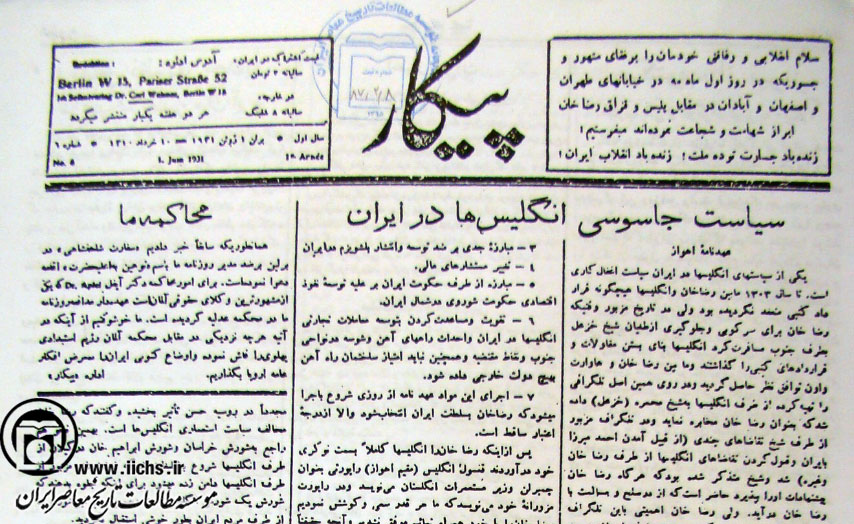 سلام انقلابی و رفاقتی خودمان را برفقای مشهور و
جسوریکه در روز اول ماه مه در خیابانهای طهران
و اصفهان و آبادان در مقابل پلیس و قزاق رضا خان
ابراز شهامت و شجاعت نموده‌اند میفرستیم!
زنده باد جسارت توده ملت! زنده باد انقلاب ایران!
پیکار
قیمت اشتراک در ایران:
سالیانه ۲ تومان
در خارجه:
سالیانه ۸ فلینگ
آدرس اداره: Redaktion:
Berlin W 15, Pariser Straße 52
Dr. Carl Wehner, Berlin W 15
هر دو هفته یکبار منتشر میگردد
سال اول برلن ۱ ژوئن ۱۹۳۱ — ۱۰ خرداد ۱۳۱۰ شماره ۶
No. 6 1. Juni 1931 1re Année
۸۷/۲/۸
سیاست جاسوسی انگلیس‌ها در ایران
عهدنامهٔ اهواز
یکی از سیاستهای انگلیسها در ایران سیاست اغفال کاری
است. تا سال ۱۳۰۳ مابین رضاخان وانگلیسها هیچگونه قرار
داد کتبی منعقد نگردیده بود ولی در تاریخ مزبور وقتیکه
رضا خان برای سرکوبی وجلوگیری ازطغیان شیخ خزعل
بطرف جنوب مسافرت کرد انگلیسها بنای بستن مقاولات و
قراردادهای کتبی را گذاشتند وما بین رضا خان و هاوارت
واون توافق نظر حاصل گردید ودر روی همین اصل تلگرافی
را تهیه کرده از طرف انگلیسها بشیخ محمره (خزعل) داده
شد که بعنوان رضا خان مخابره نماید ودر تلگراف مزبور
از طرف شیخ تقاضاهای چندی (از قبیل آمدن احمد میرزا
بایران وقبول کردن تقاضاهای انگلیسها از طرف رضا خان
وغیره) شد وشیخ متذکر شده بود که هرگاه رضا خان
پیشنهادات اورا بپذیرد حاضر است که از در صلح و مسالمت با
رضا خان درآید. ولی رضا خان اهمیتی باین تلگراف
۳ — مبارزهٔ جدی بر ضد توسعه وانتشار بلشویزم در ایران
۴ — تغییر مستشارهای مالی.
۵ — مبارزه از طرف حکومت ایران بر علیه توسعهٔ نفوذ
اقتصادی حکومت شوروی در شمال ایران.
۶ — تقویت ومساعدت کردن بتوسعه معاملات تجارتی
انگلیسها در ایران واحداث راههای آهن وشوسه درنواحی
جنوب ونقاط مقتضیه وهمچنین نباید امتیاز ساختمان راه آهن
بهیچ دولت خارجی داده شود.
۷ — اجرای این مواد عهد نامه از روزی شروع باجرا
میشود که رضاخان بسلطنت ایران انتخاب شود والا ازدرجهٔ
اعتبار ساقط است.
پس ازاینکه رضا خان را انگلیسها کاملاً بسمت نوکری
خود درآوردند قنسول انگلیس (مقیم اهواز) راپورتی بعنوان
جمبرلن وزیر مستعمرات انگلستان می‌نویسد ودر راپورت
مزورانهٔ خود می‌نویسد که ما هر قدر سعی وکوشش نمودیم
محاکمه ما
همانطوریکه سابقاً خبر دادیم «سفارت شاهنشاهی» در
برلین برضد مدیر روزنامه ما باسم توهین به «اعلیحضرت» اقامه
دعوا نموده است. برای امور محاکمه دکتر آپفل Dr. Apfel که یکی
از مشهورترین وکلای حقوقی آلمان است عهده‌دار مدافعه روزنامه
ما در محکمه عدلیه گردیده است. ما خوشوقتیم از آنکه در
آتیه هرچه نزدیکی در مقابل محکمه آلمان رژیم استبدادی
پهلوی را فاش نموده واوضاع کنونی ایران را بمعرض افکار
عامه اروپا بگذاریم. اداره «پیکار»
مجدداً در روسیه حسن تأثیر بخشید، وکنندکه رضا
مخالف سیاست استعماری انگلیس‌ها است.
راجع بشورش خراسان وشورش ابراهیم خان در گیلان از
طرف انگلیسها
www.iichs.ir
موسسه مطالعات تاریخ معاصر ایران